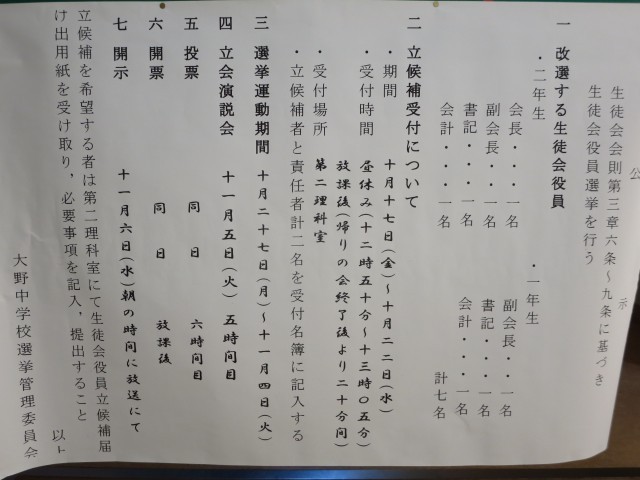 公示
生徒会会則第三章六条～九条に基づき
生徒会役員選挙を行う
一 改選する生徒会役員
・二年生
会長・・・一名
副会長・・一名
書記・・・一名
会計・・・一名
・一年生
副会長・・・一名
書記・・・一名
会計・・・一名
計七名
二 立候補受付について
・期間 十月十七日(金)～十月二二日(水)
・受付時間 昼休み(十二時五十分～十三時〇五分)
放課後(帰りの会終了後より二十分間)
・受付場所 第二理科室
・立候補者と責任者計二名を受付名簿に記入する
三 選挙運動期間 十月二十七日(月)～十一月四日(火)
四 立会演説会 十一月五日(火) 五時間目
五 投票 同日 六時間目
六 開票 同日 放課後
七 開示 十一月六日(水)朝の時間に放送にて
立候補を希望する者は第二理科室にて生徒会役員立候補届
け出用紙を受け取り，必要事項を記入，提出すること
以
大野中学校選挙管理委員会